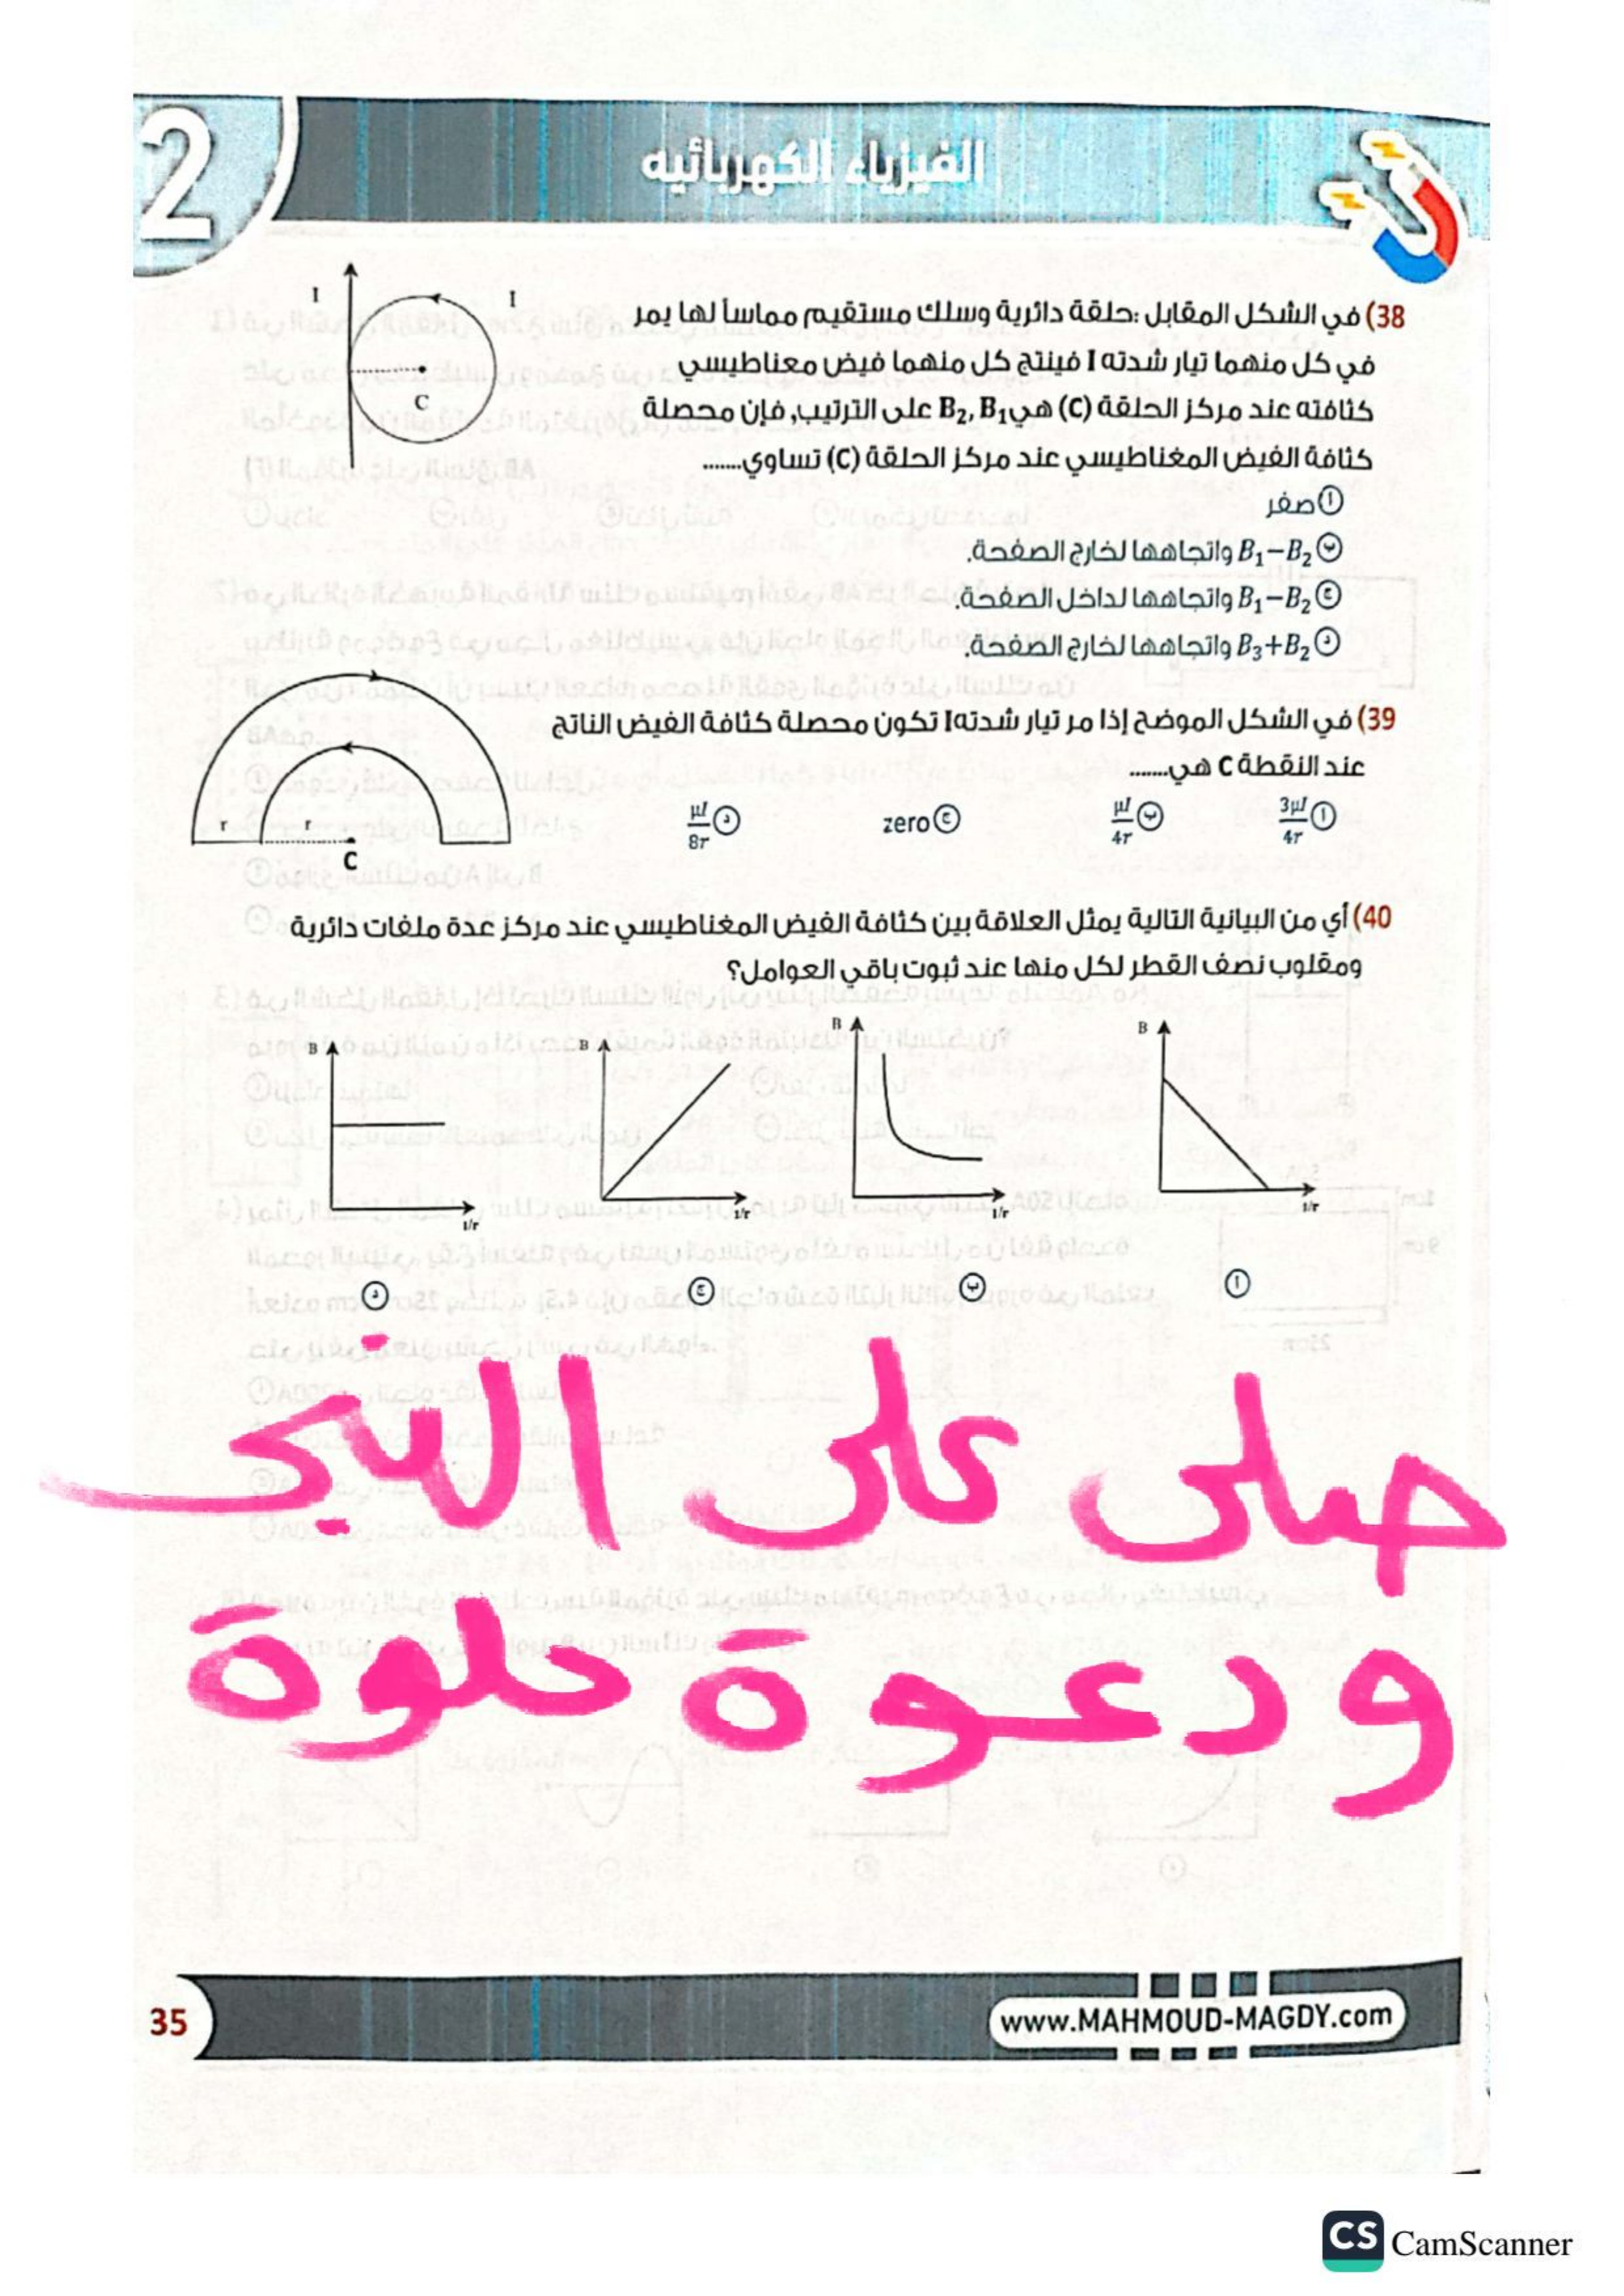 2
الفيزياء الكهربائيه
38) في الشكل المقابل :حلقة دائرية وسلك مستقيم مماساً لها يمر
في كل منهما تيار شدته I فينتج كل منهما فيض مغناطيسي
كثافته عند مركز الحلقة (C) هي B₂, B₁ على الترتيب, فإن محصلة
كثافة الفيض المغناطيسي عند مركز الحلقة (C) تساوي.......
I
I
C
أ صفر
ب B₁−B₂ واتجاهها لخارج الصفحة.
ج B₁−B₂ واتجاهها لداخل الصفحة.
د B₃+B₂ واتجاهها لخارج الصفحة.
39) في الشكل الموضح إذا مر تيار شدته I تكون محصلة كثافة الفيض الناتج
عند النقطة C هي.......
أ 3μI/4r ب μI/4r ج zero د μI/8r
r r
C
40) أي من البيانية التالية يمثل العلاقة بين كثافة الفيض المغناطيسي عند مركز عدة ملفات دائرية
ومقلوب نصف القطر لكل منها عند ثبوت باقي العوامل؟
B B B B
1/r 1/r 1/r 1/r
أ ب ج د
صلى على النبي
ودعوة حلوة
35
www.MAHMOUD-MAGDY.com
CS CamScanner